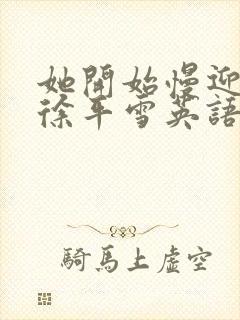 她開始慢迎
徐平雪英語
騎馬上虛空